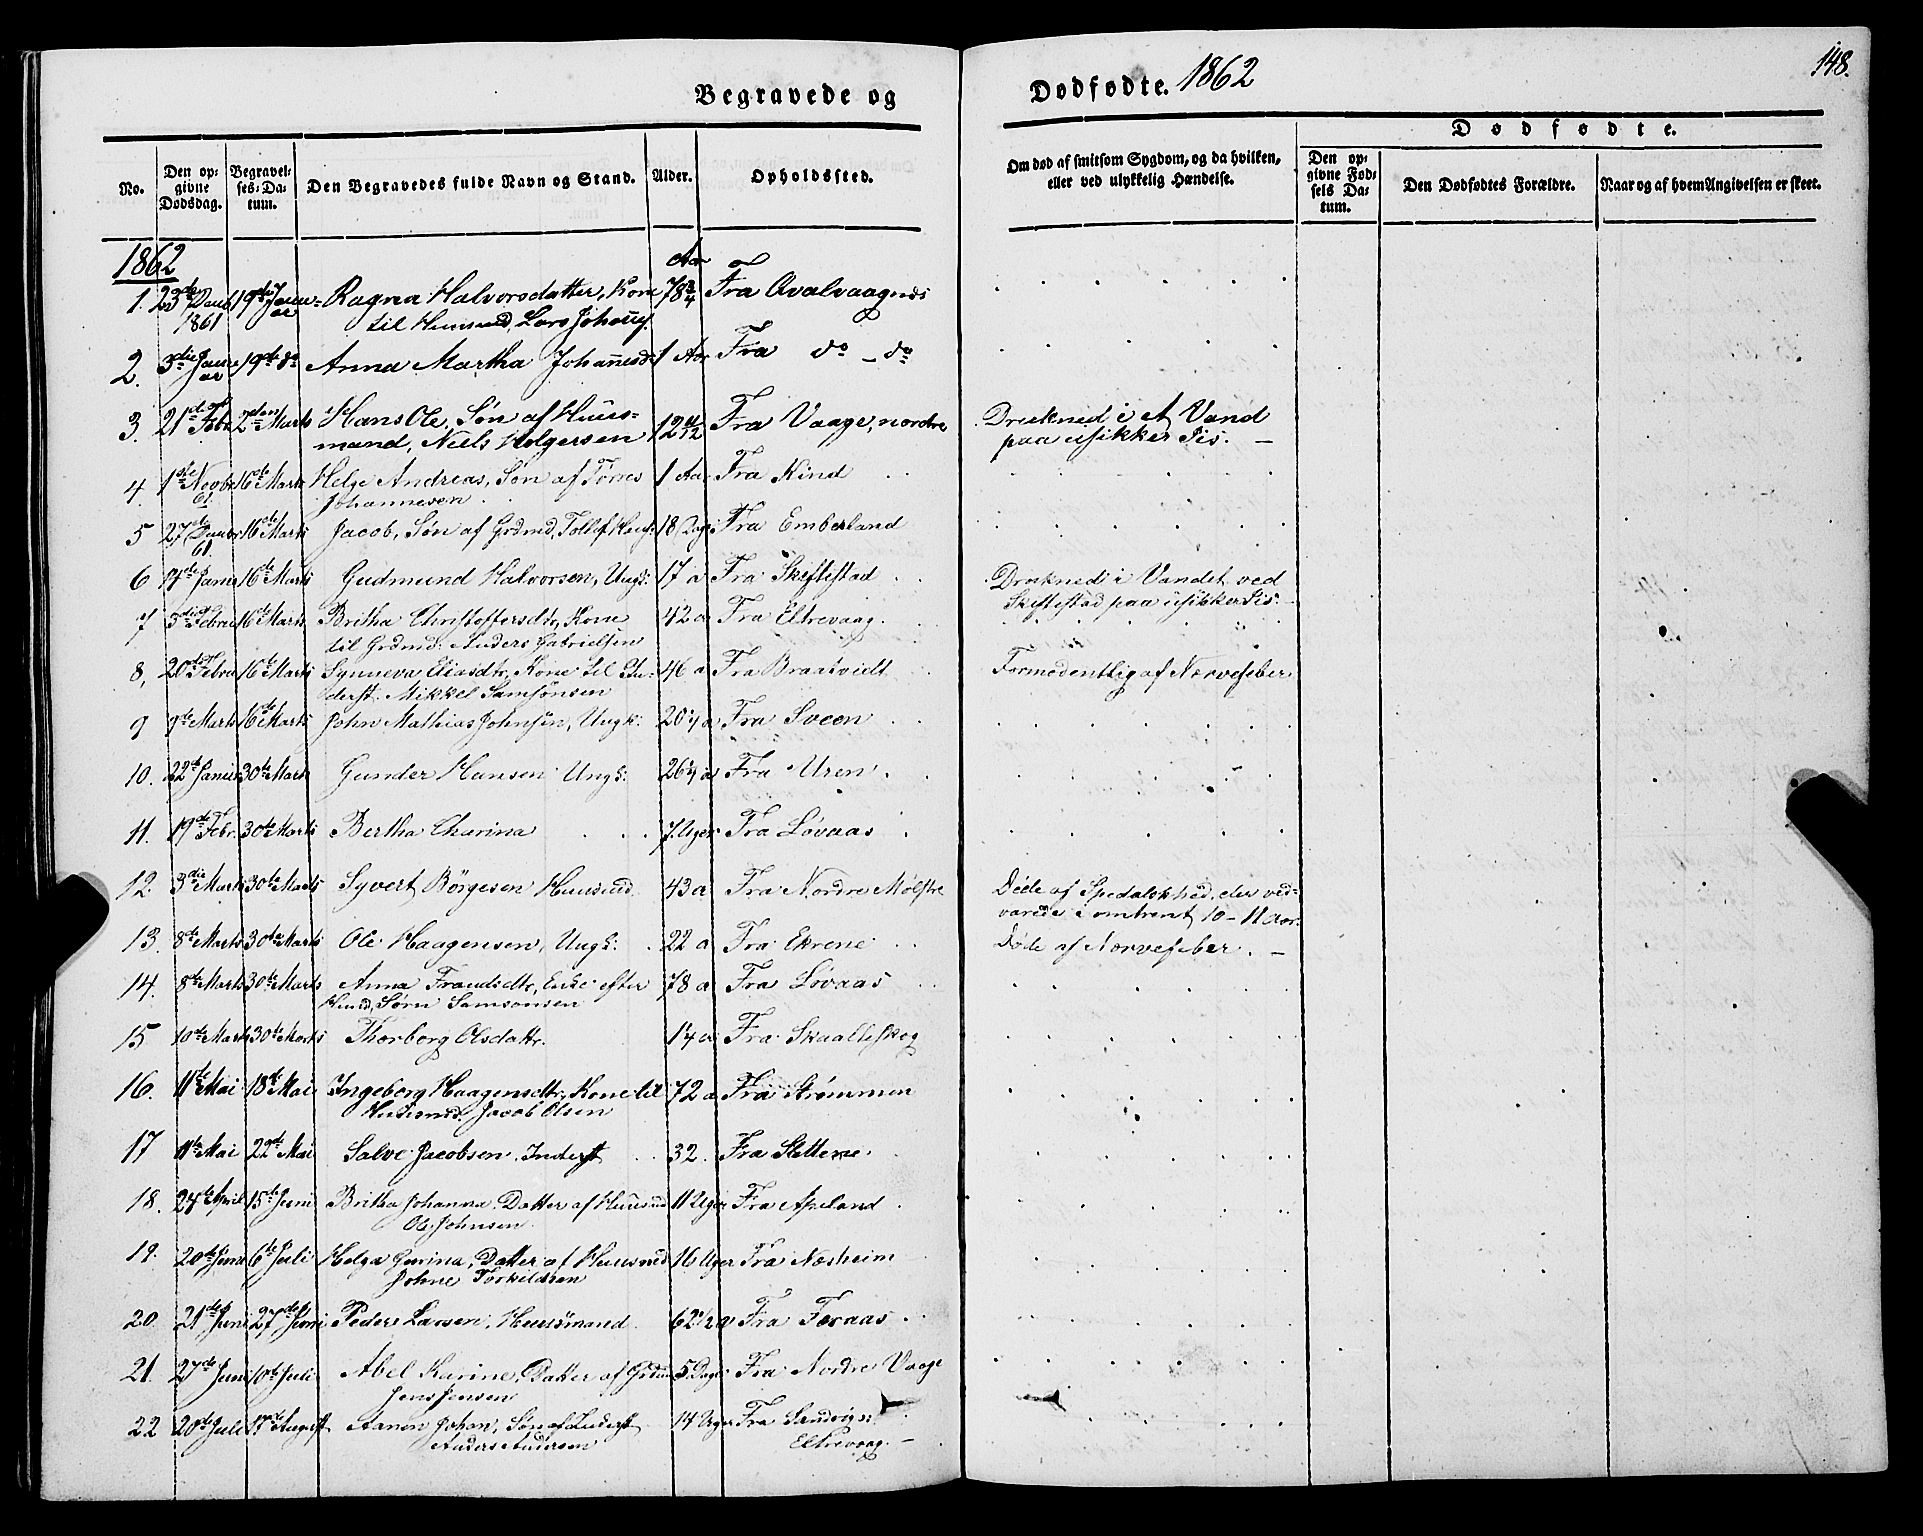 148.
Begravede og Dødfødte. 1862
Dødfødte.
No.
Den opgivne Dødsdag.
Begravelses-Datum.
Den Begravedes fulde Navn og Stand.
Alder.
Opholdssted.
Om død af smitsom Sygdom, og da hvilken, eller ved ulykkelig Hændelse.
Den opgivne Fødsels Datum.
Den Dødfødtes Forældre.
Naar og af hvem Angivelsen er skeet.
1862 Aar
1. 23de 1861 19de Januar Ragna Halvorsdatter, Kone 78 3/4 Fra Qvalvaagnæs
til Huusmd, Lars
2. 3die Januar 19de do Anna Martha Johannesdr 1 Aar Fra do - do
3. 21de Febr 2den Marts Hans Ole, Søn af Huus= 12 11/12 Fra Vaage, nordre Druknede i et Vand
mand, Niels Holgersen paa usikker Iis. —
4 1ste Novbr 61 16de Marts Helge Andreas, Søn af Tørres 1 Aar Fra Kind
Johannesen
5 27de 61. 16de Marts Jacob, Søn af Grdmd, Tollef 18 Dage Fra Emberland
6 16de Marts Gudmund Halvorsen, Ungk: 17 a Fra Skeftestad Druknede i Vandet ved
Skeftestad paa usikker Iis. —
7 16de Marts Britha Christoffersdtr, Kone 42 a Fra Eltrevaag.
til Grdmd: Anders Gabrielsen
8, 20de Febru 16de Marts Synneva Eliasdtr, Kone til In- 46 a Fra Braatveidt Formodentlig af Nervefeber
derst. Mikkel Samsonsen
9 9de Marts 16de Marts John Mathias Johnsen, Ungk: Fra Sveen
10. 22de Januar 30te Marts Gunder Hansen Ungk: Fra Uren.
11. 19de Febr. 30te Marts Bertha Charina 7 Uger Fra Løvaas
12. 3die Marts 30te Marts Syvert Børgesen Huusmd. 43 a Fra Nordre Mølstre Døde af Spedalskhed, der ved-
varede i omtrent 10 - 11 Aar.
13. 8de Marts 30te Marts Ole Haagensen, Ungk: 22 a Fra Ekrene Døde af Nervefeber. —
14. 8de Marts 30te Marts Anna Enke efter 78 a Fra Løvaas
Huusmd, Sørn Samsonsen
15 10de Marts 30te Marts Thorborg Olsdattr. Fra Skaalteskog
16. 11te Mai 18de Mai Ingeborg Haagensdtr, Kone til 72 a Fra Strømmen
Huusmd. Jacob Olsen
17 11te Mai 22de Mai Salve Jacobsen, Inderst 32. Fra Slettene
18. 24de April 15de Juni Britha Johanna, Datter af Huusmd 11 Uger Fra Apeland
Ole Johnsen
19. 20de Juni 6te Juli Helga Gurina, Datter af Huusmd 16 Uger Fra Næsheim
Johne Torkildsen
20. 21de Juni 27de Juni Peder Larsen, Huusmand. 62 1/2 a Fra Tøraas
21. 27de Juni 10de Juli Abel Karine, Datter af Grdmd 5 Dage Fra Nordre Vaage
Jens Jensen
22 20de Juli 17de August Aanen Johan, Søn af Inderst 14 Uger Fra Sandvig
Anders Andersen Eltrevaag. —